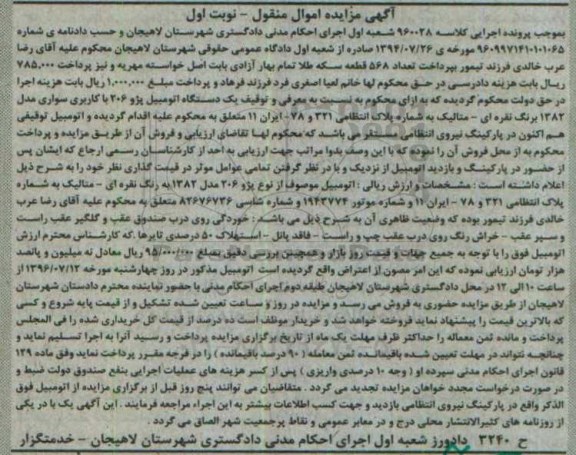 آگهی مزایده اموال منقول - نوبت اول
بموجب پرونده اجرایی کلاسه ۹۶۰۰۲۸ شعبه اول اجرای احکام مدنی دادگستری شهرستان لاهیجان و حسب دادنامه ی شماره
۹۶۰۹۹۷۱۴۱۰۱۰۱۰۶۵ مورخه ی ۱۳۹۴/۰۷/۲۶ صادره از شعبه اول دادگاه عمومی حقوقی شهرستان لاهیجان محکوم علیه آقای رضا
عرب خالدی فرزند تیمور بپرداخت تعداد ۵۶۸ قطعه سکه طلا تمام بهار آزادی بابت اصل خواسته مهریه و نیز پرداخت ۷۸۵,۰۰۰
ریال بابت هزینه دادرسی در حق محکوم لها خانم لعیا اصغری فرد فرزند فرهاد و پرداخت مبلغ ۱,۰۰۰,۰۰۰ ریال بابت هزینه اجرا
در حق دولت محکوم گردیده که به ازای محکوم به نسبت به معرفی و توقیف یک دستگاه اتومبیل پژو ۲۰۶ با کاربری سواری مدل
۱۳۸۲ برنگ نقره ای - متالیک به شماره پلاک انتظامی ۳۲۱ و ۷۸ - ایران ۱۱ متعلق به محکوم علیه اقدام گردیده و اتومبیل توقیفی
هم اکنون در پارکینگ نیروی انتظامی مستقر می باشد که محکوم لها تقاضای ارزیابی و فروش آن از طریق مزایده و پرداخت
محکوم به از محل فروش آن را نموده که با این وصف بدوا مراتب جهت ارزیابی به احد از کارشناسان رسمی ارجاع که ایشان پس
از حضور در پارکینگ و بازدید اتومبیل از نزدیک و با در نظر گرفتن تمامی عوامل موثر در قیمت گذاری نظر خود را به شرح ذیل
اعلام داشته است : مشخصات و ارزش ریالی : اتومبیل موصوف از نوع پژو ۲۰۶ مدل ۱۳۸۲ به رنگ نقره ای - متالیک به شماره
پلاک انتظامی ۳۲۱ و ۷۸ - ایران ۱۱ و شماره موتور ۱۹۴۳۷۷۴ و شماره شاسی ۸۲۶۷۶۷۳۶ متعلق به محکوم علیه آقای رضا عرب
خالدی فرزند تیمور بوده که وضعیت ظاهری آن به شرح ذیل می باشد : خوردگی روی درب صندوق عقب و گلگیر عقب راست
و سپر عقب - خراش رنگ روی درب عقب چپ و راست - فاقد پانل - استهلاک ۵۰ درصدی تایرها .که کارشناس محترم ارزش
اتومبیل فوق را با توجه به جمیع جهات و قیمت روز بازار و همچنین بررسی دقیق بمبلغ ۹۵/۰۰۰/۰۰۰ ریال معادل نه میلیون و پانصد
هزار تومان ارزیابی نموده که این امر مصون از اعتراض واقع گردیده است اتومبیل مذکور در روز چهارشنبه مورخه ۱۳۹۶/۰۷/۱۲ از
ساعت ۱۰ الی ۱۲ در محل دادگستری شهرستان لاهیجان طبقه دوم اجرای احکام مدنی با حضور نماینده محترم دادستان شهرستان
لاهیجان از طریق مزایده حضوری به فروش می رسد و مزایده در روز و ساعت تعیین شده تشکیل و از قیمت پایه شروع و کسی
که بالاترین قیمت را پیشنهاد نماید فروخته خواهد شد و خریدار موظف است ده درصد از قیمت کل خریداری شده را فی المجلس
پرداخت و مانده ثمن معماله را حداکثر ظرف مهلت یک ماه از تاریخ برگزاری مزایده پرداخت و رسید آنرا به اجرا تسلیم نماید و
چنانچه نتواند در مهلت تعیین شده باقیمانده ثمن معامله ( ۹۰ درصد باقیمانده ) را در فرجه مقرر پرداخت نماید وفق ماده ۱۲۹
قانون اجرای احکام مدنی سپرده او ( وجه ۱۰ درصدی واریزی ) پس از کسر هزینه های عملیات اجرایی بنفع صندوق دولت ضبط و
در صورت درخواست مجدد خواهان مزایده تجدید می گردد . متقاضیان می توانند پنج روز قبل از برگزاری مزایده از اتومبیل فوق
الذکر واقع در پارکینگ نیروی انتظامی بازدید و جهت کسب اطلاعات بیشتر به این اجراء مراجعه فرمایند . این آگهی یک با در یکی
از روزنامه های کثیرالانتشار محلی درج و در معابر عمومی و نقاط پرجمعیت شهر الصاق می گردد .
ح ۳۲۴۰ دادورز شعبه اول اجرای احکام مدنی دادگستری شهرستان لاهیجان - خدمتگزار